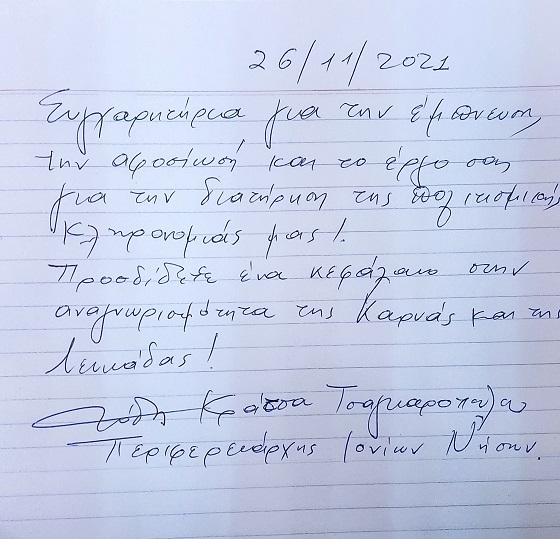 26/11/2021
Συγχαρητήρια για την έμπνευση,
την αφοσίωσή και το έργο σας
για την διατήρηση της πολιτισμικής
κληρονομιάς μας!
Προσδίδετε ένα κεφάλαιο στην
αναγνωρισιμότητα της Καρυάς και της
Λευκάδας!
Ρόδη Κράτσα Τσαγκαροπούλου
Περιφερειάρχης Ιονίων Νήσων.